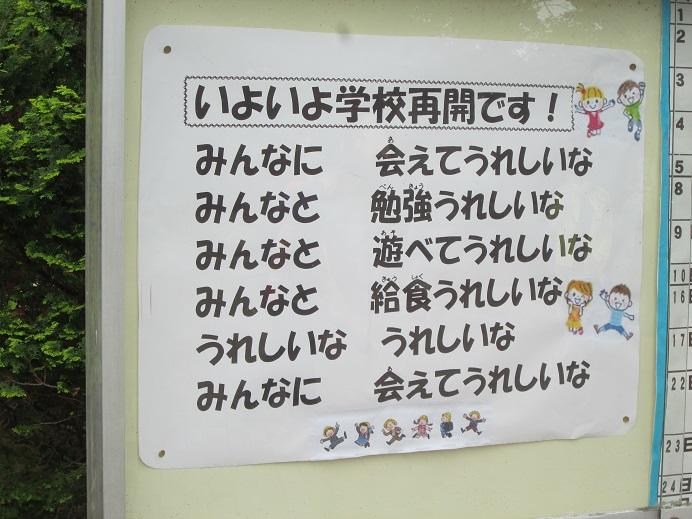 いよいよ学校再開です！
みんなに　会えてうれしいな
みんなと　勉強うれしいな
みんなと　遊べてうれしいな
みんなと　給食うれしいな
うれしいな　うれしいな
みんなに　会えてうれしいな
1
2
3
4
5
8
9
10日
16
17日
22
23日
24日